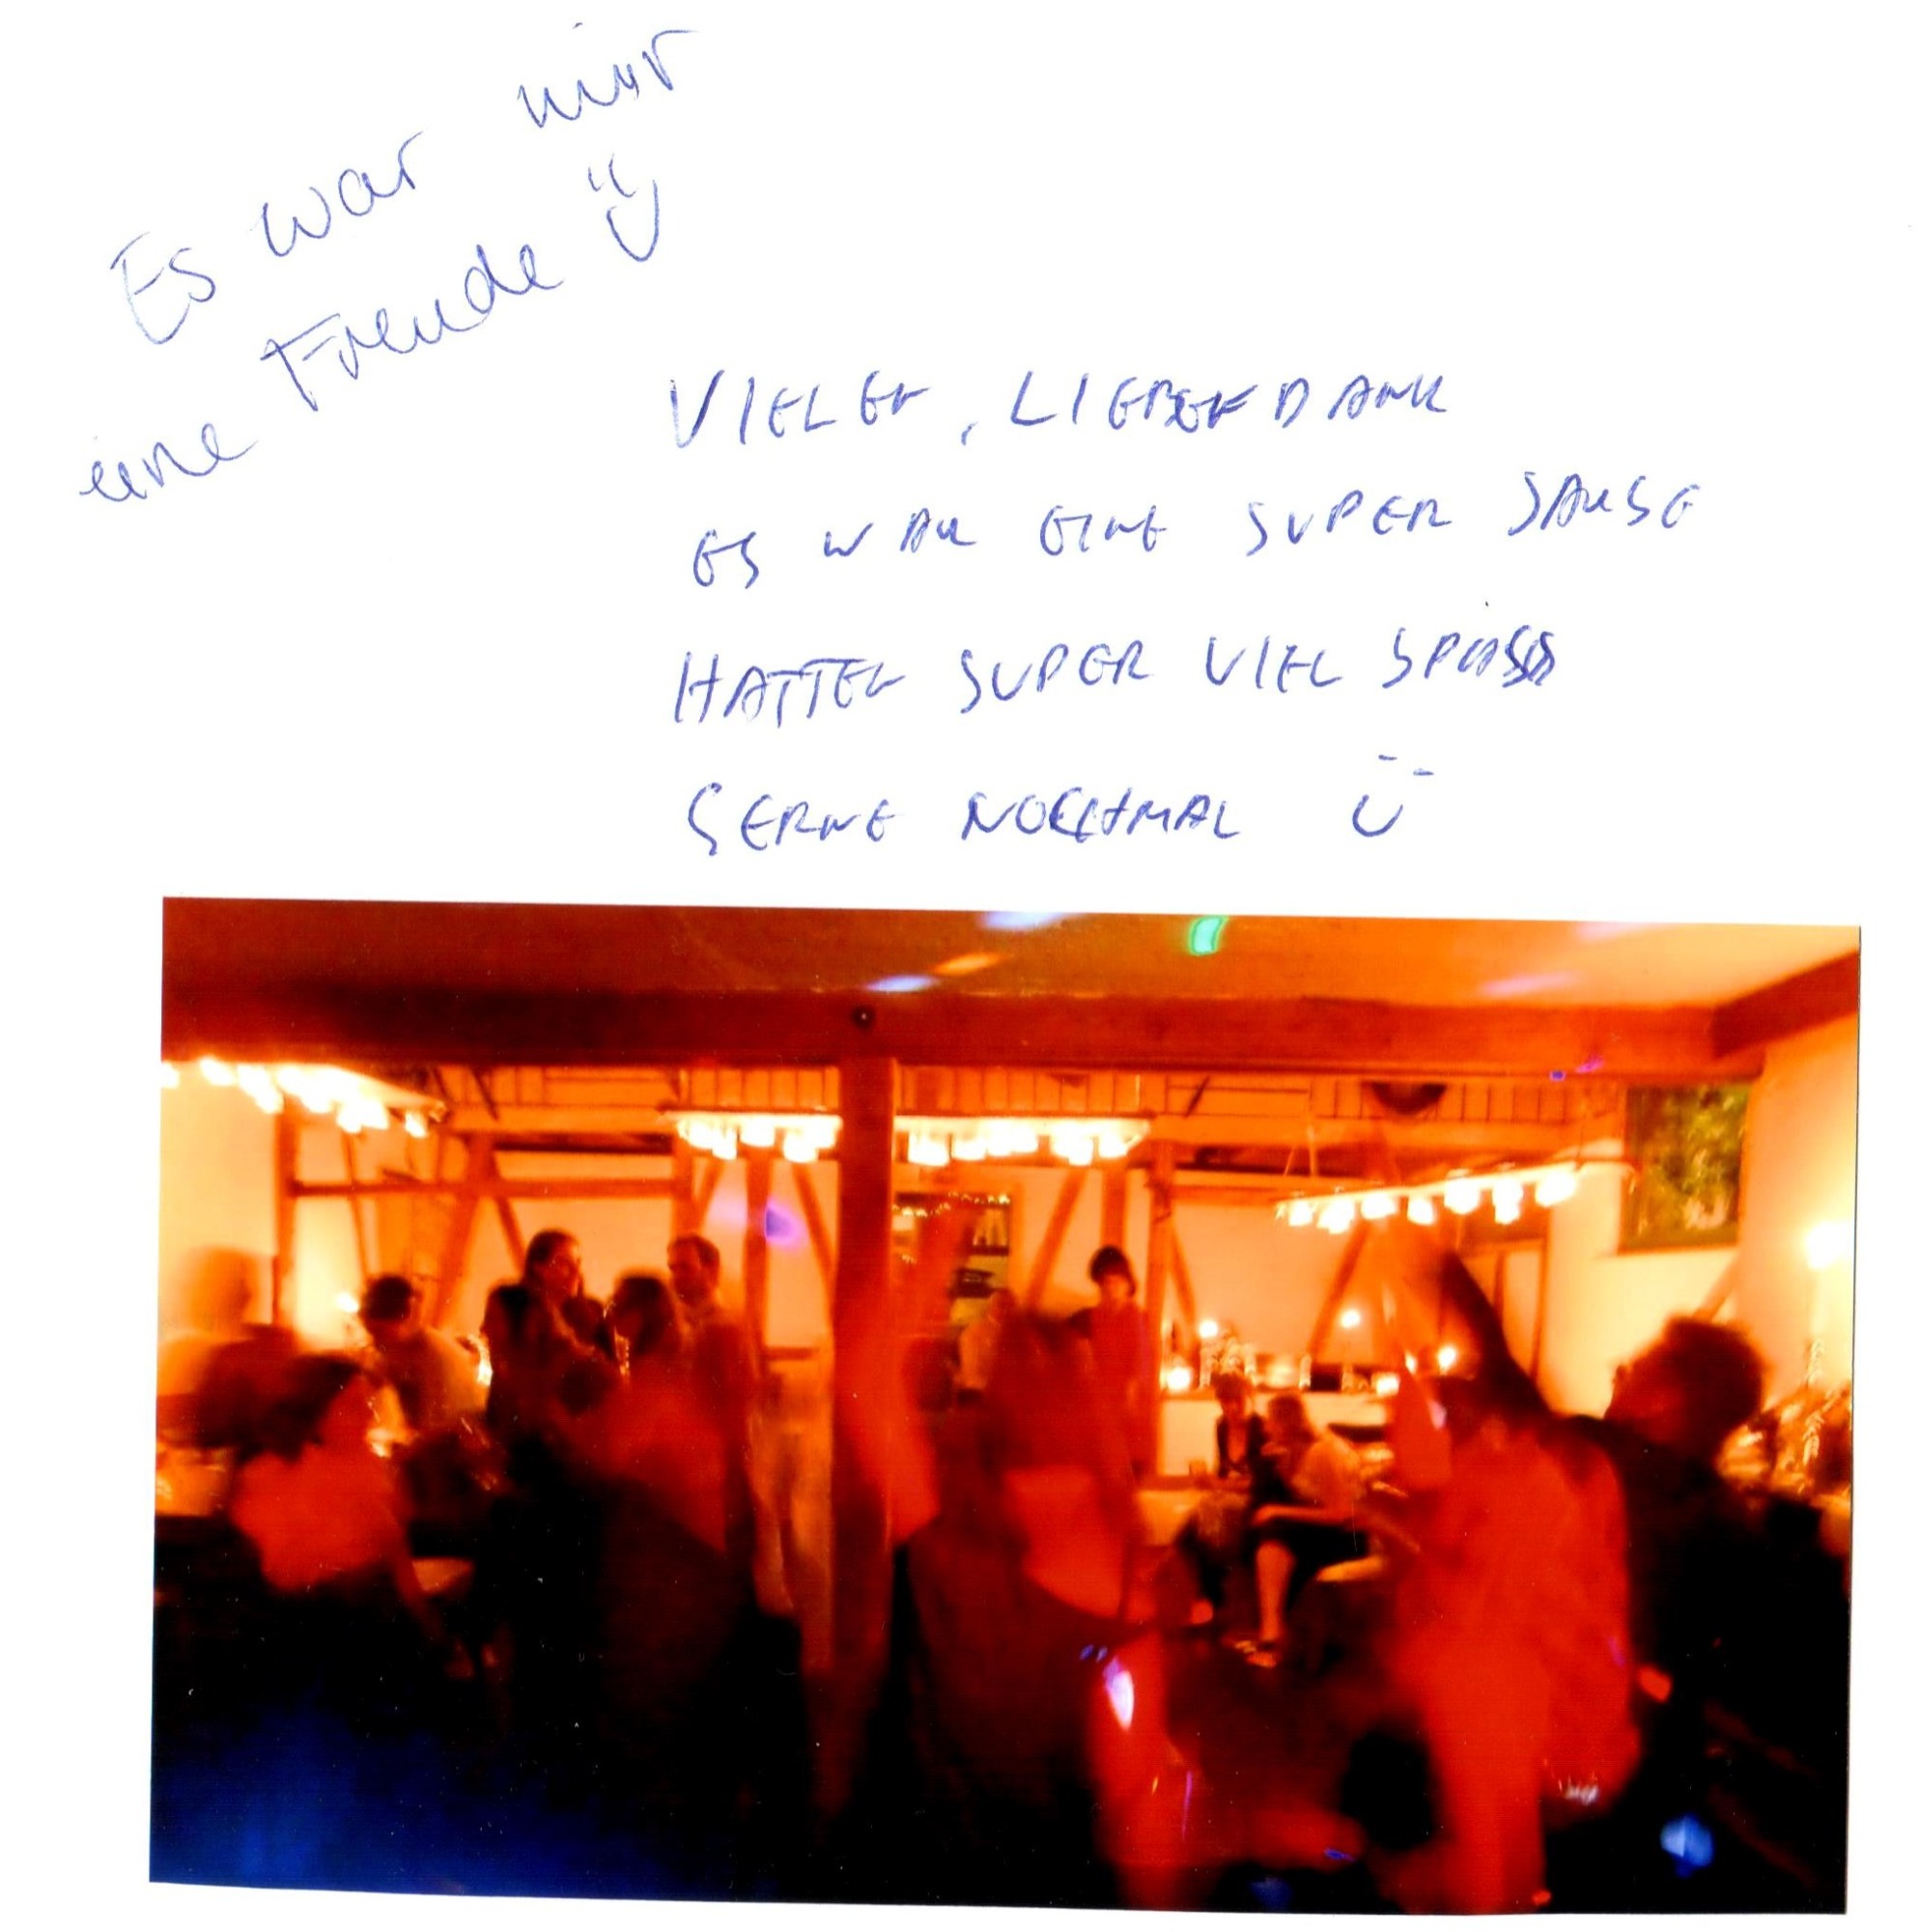 Es war mir
eine Freude
VIELEN, LIEBEN DANK
ES WAR EINE SUPER SAUSE
HATTEN SUPER VIEL SPASS
GERNE NOCHMAL